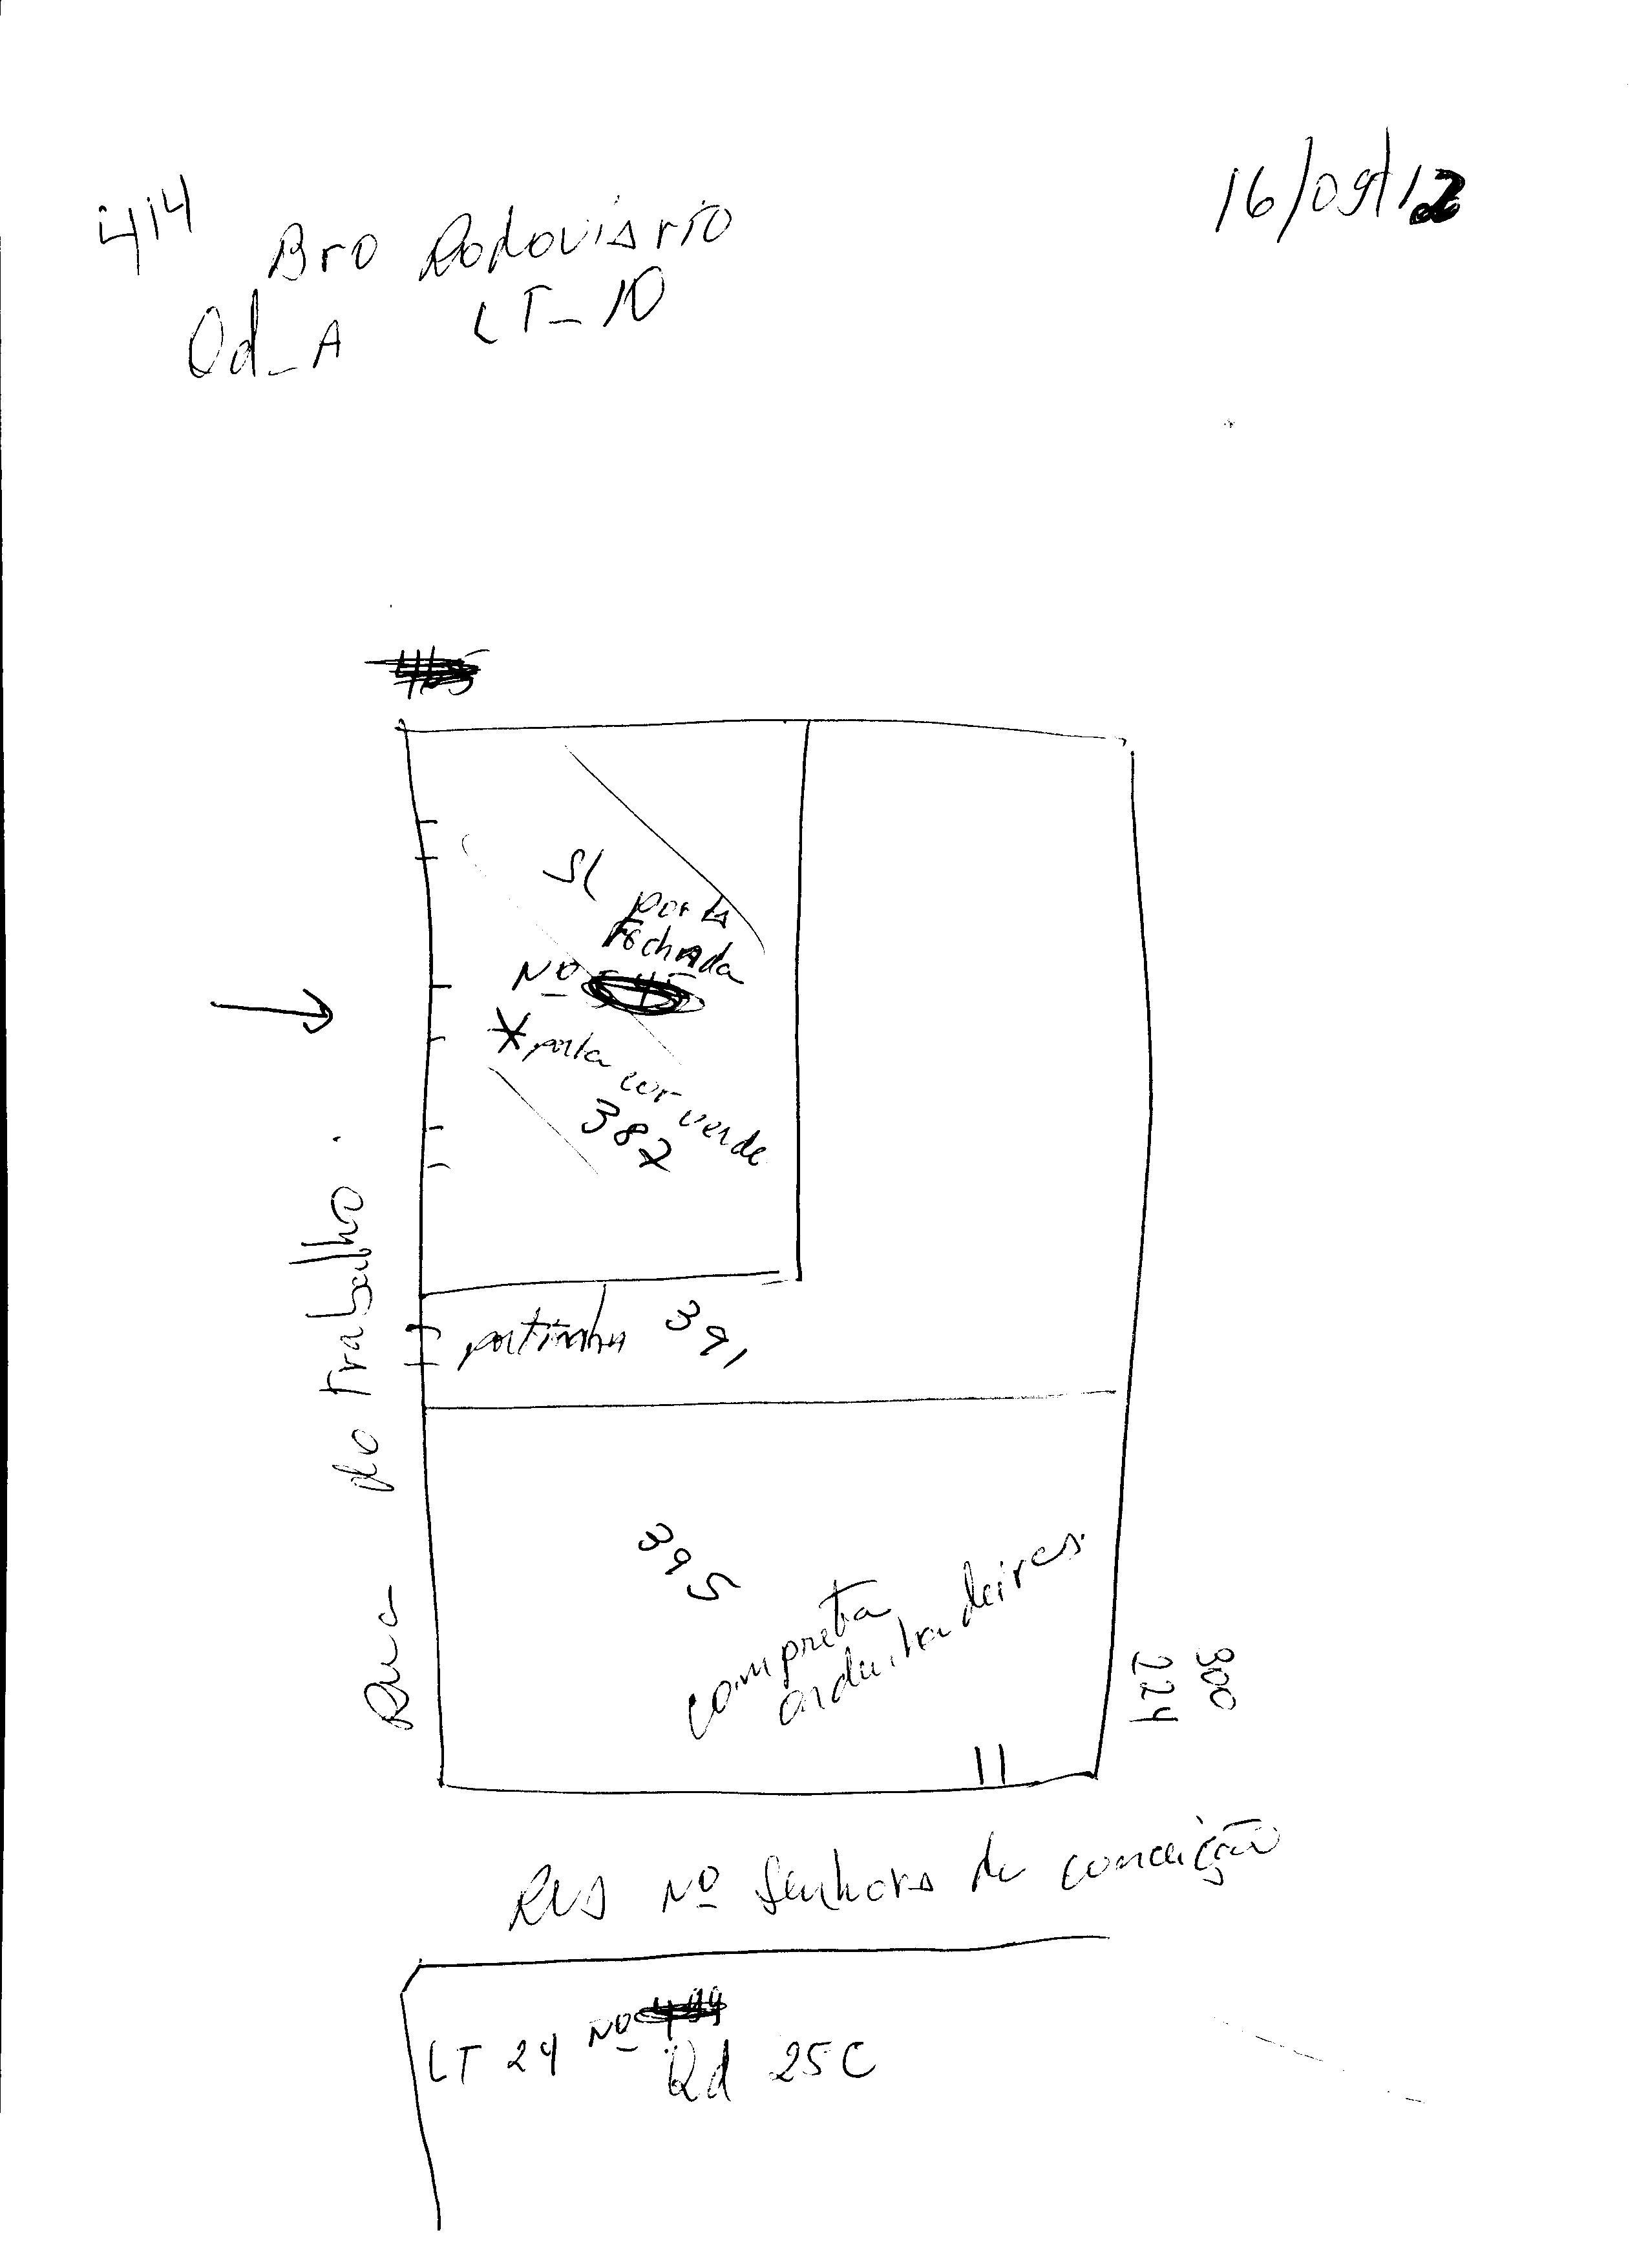 414
16/09/12
Bro Rodoviario
Qd_A LT_10
SL
porta
Fechada
Nº
*porta cor verde
382
Rua do trabalho.
portinha 391
395
compreta
ordenhadeiras.
300
224
Rua Nº Senhora da conceição
LT 24 Nº
Qd 25C